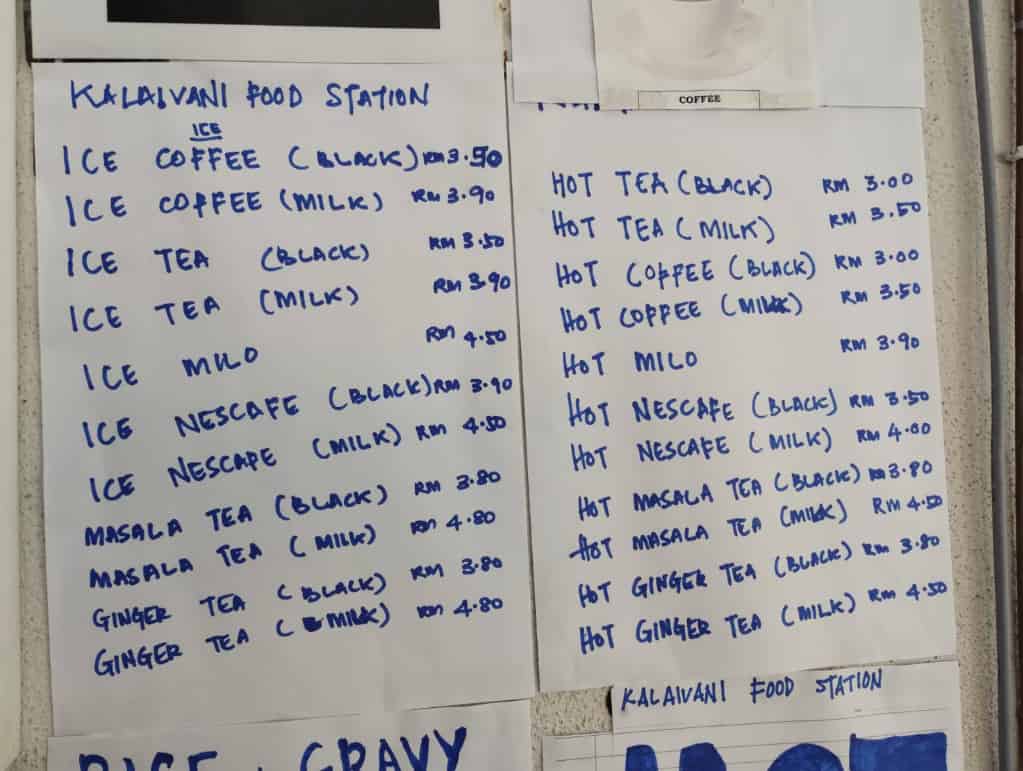 KALAIVANI FOOD STATION
ICE
ICE COFFEE (BLACK) RM 3.50
ICE COFFEE (MILK) RM 3.90
ICE TEA (BLACK) RM 3.50
ICE TEA (MILK) RM 3.90
ICE MILO RM 4.50
ICE NESCAFE (BLACK) RM 3.90
ICE NESCAFE (MILK) RM 4.50
MASALA TEA (BLACK) RM 3.80
MASALA TEA (MILK) RM 4.80
GINGER TEA (BLACK) RM 3.80
GINGER TEA (MILK) RM 4.80
COFFEE
HOT TEA (BLACK) RM 3.00
HOT TEA (MILK) RM 3.50
HOT COFFEE (BLACK) RM 3.00
HOT COFFEE (MILK) RM 3.50
HOT MILO RM 3.90
HOT NESCAFE (BLACK) RM 3.50
HOT NESCAFE (MILK) RM 4.00
HOT MASALA TEA (BLACK) RM 3.80
HOT MASALA TEA (MILK) RM 4.50
HOT GINGER TEA (BLACK) RM 3.80
HOT GINGER TEA (MILK) RM 4.50
KALAIVANI FOOD STATION
GRAVY